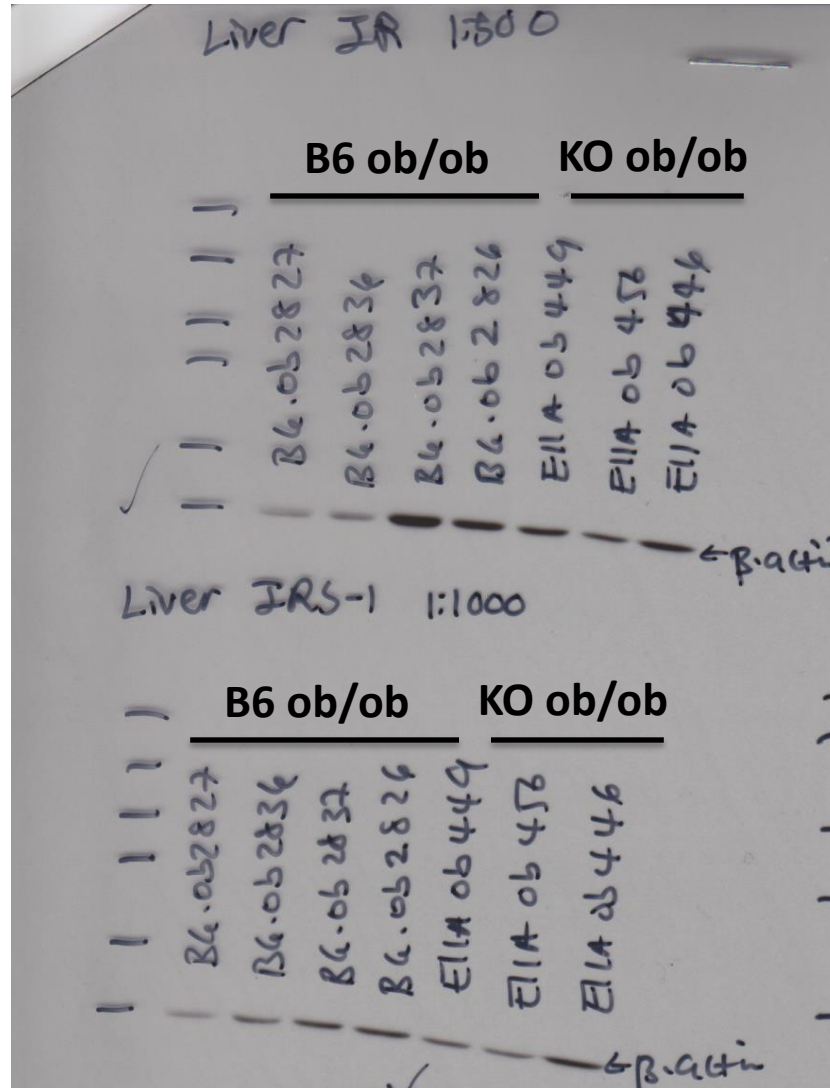 Liver IR 1:500
B6 ob/ob KO ob/ob
B6.ob2827
B6.ob2836
B6.ob2837
B6.ob2826
EllA ob 449
EllA ob 456
EllA ob 446
←β.actin
Liver IRS-1 1:1000
B6 ob/ob KO ob/ob
B6.ob2827
B6.ob2836
B6.ob2837
B6.ob2826
EllA ob 449
EllA ob 456
EllA ob 446
←β.actin